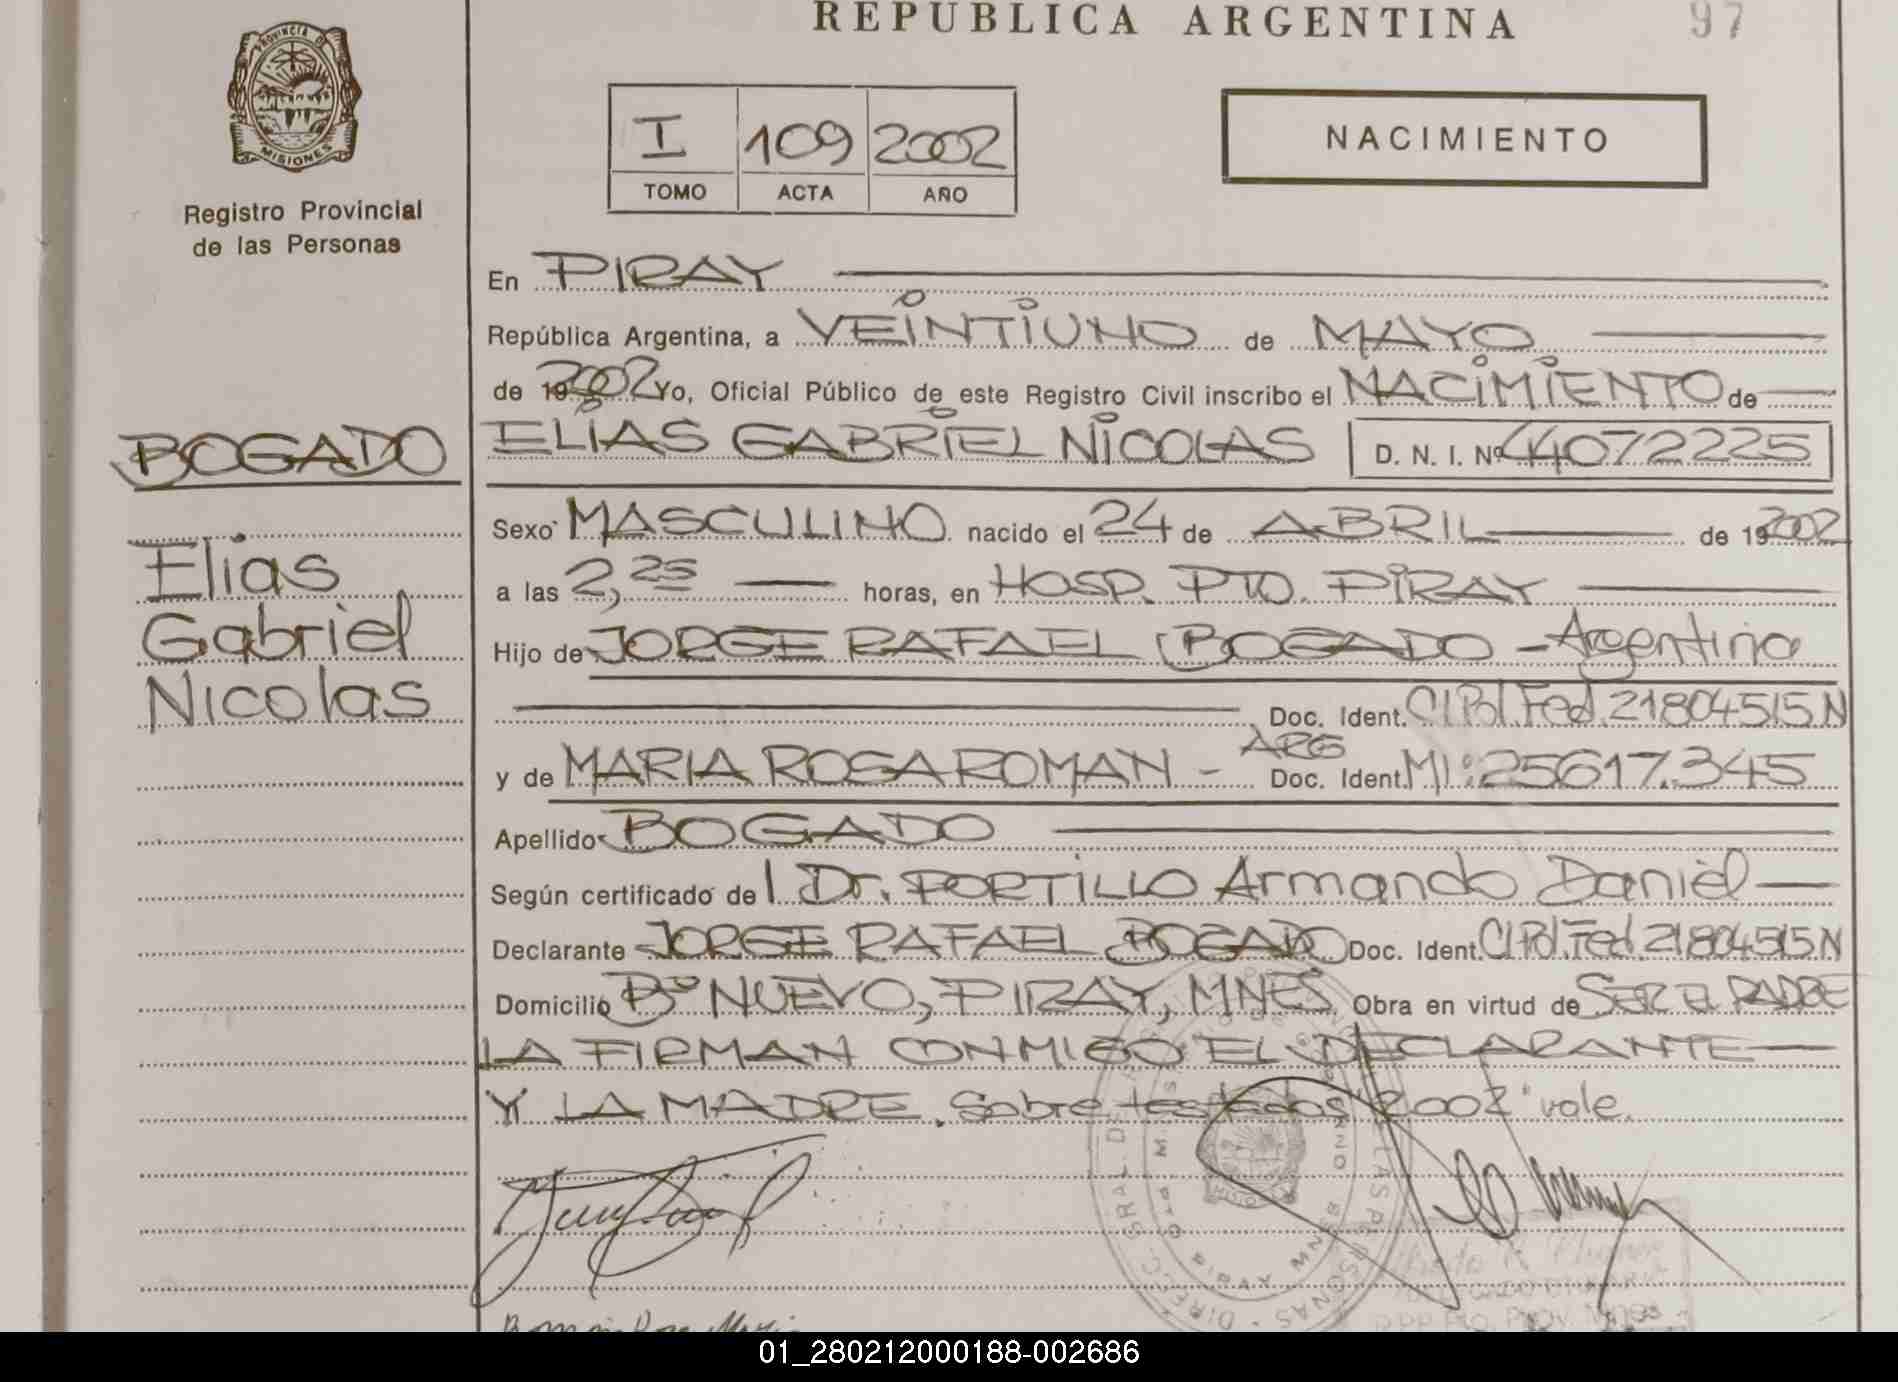 REPUBLICA ARGENTINA
97
PROVINCIA DE
MISIONES
Registro Provincial
de las Personas
I 109 2002
TOMO ACTA AÑO
NACIMIENTO
En PIRAY
República Argentina, a VEINTIUNO de MAYO
de 19 2002 Yo, Oficial Público de este Registro Civil inscribo el NACIMIENTO de
BOGADO
ELIAS GABRIEL NICOLAS D. N. I. Nº 44072225
Sexo MASCULINO nacido el 24 de ABRIL de 19 2002
Elias
Gabriel
Nicolas
a las 2,25 horas, en HOSP. PTO. PIRAY
Hijo de JORGE RAFAEL BOGADO - Argentina
Doc. Ident. CI Pol. Fed. 21804515 N
y de MARIA ROSA ROMAN - ARG Doc. Ident. MI: 25617.345
Apellido BOGADO
Según certificado de l Dr. PORTILLO Armando Daniel
Declarante JORGE RAFAEL BOGADO Doc. Ident. CI Pol. Fed. 21804515 N
Domicilio Bº NUEVO, PIRAY, MNES Obra en virtud de SER EL PADRE
LA FIRMAN CONMIGO EL DECLARANTE
Y LA MADRE. Sobre testados "2002" vale.
01_280212000188-002686